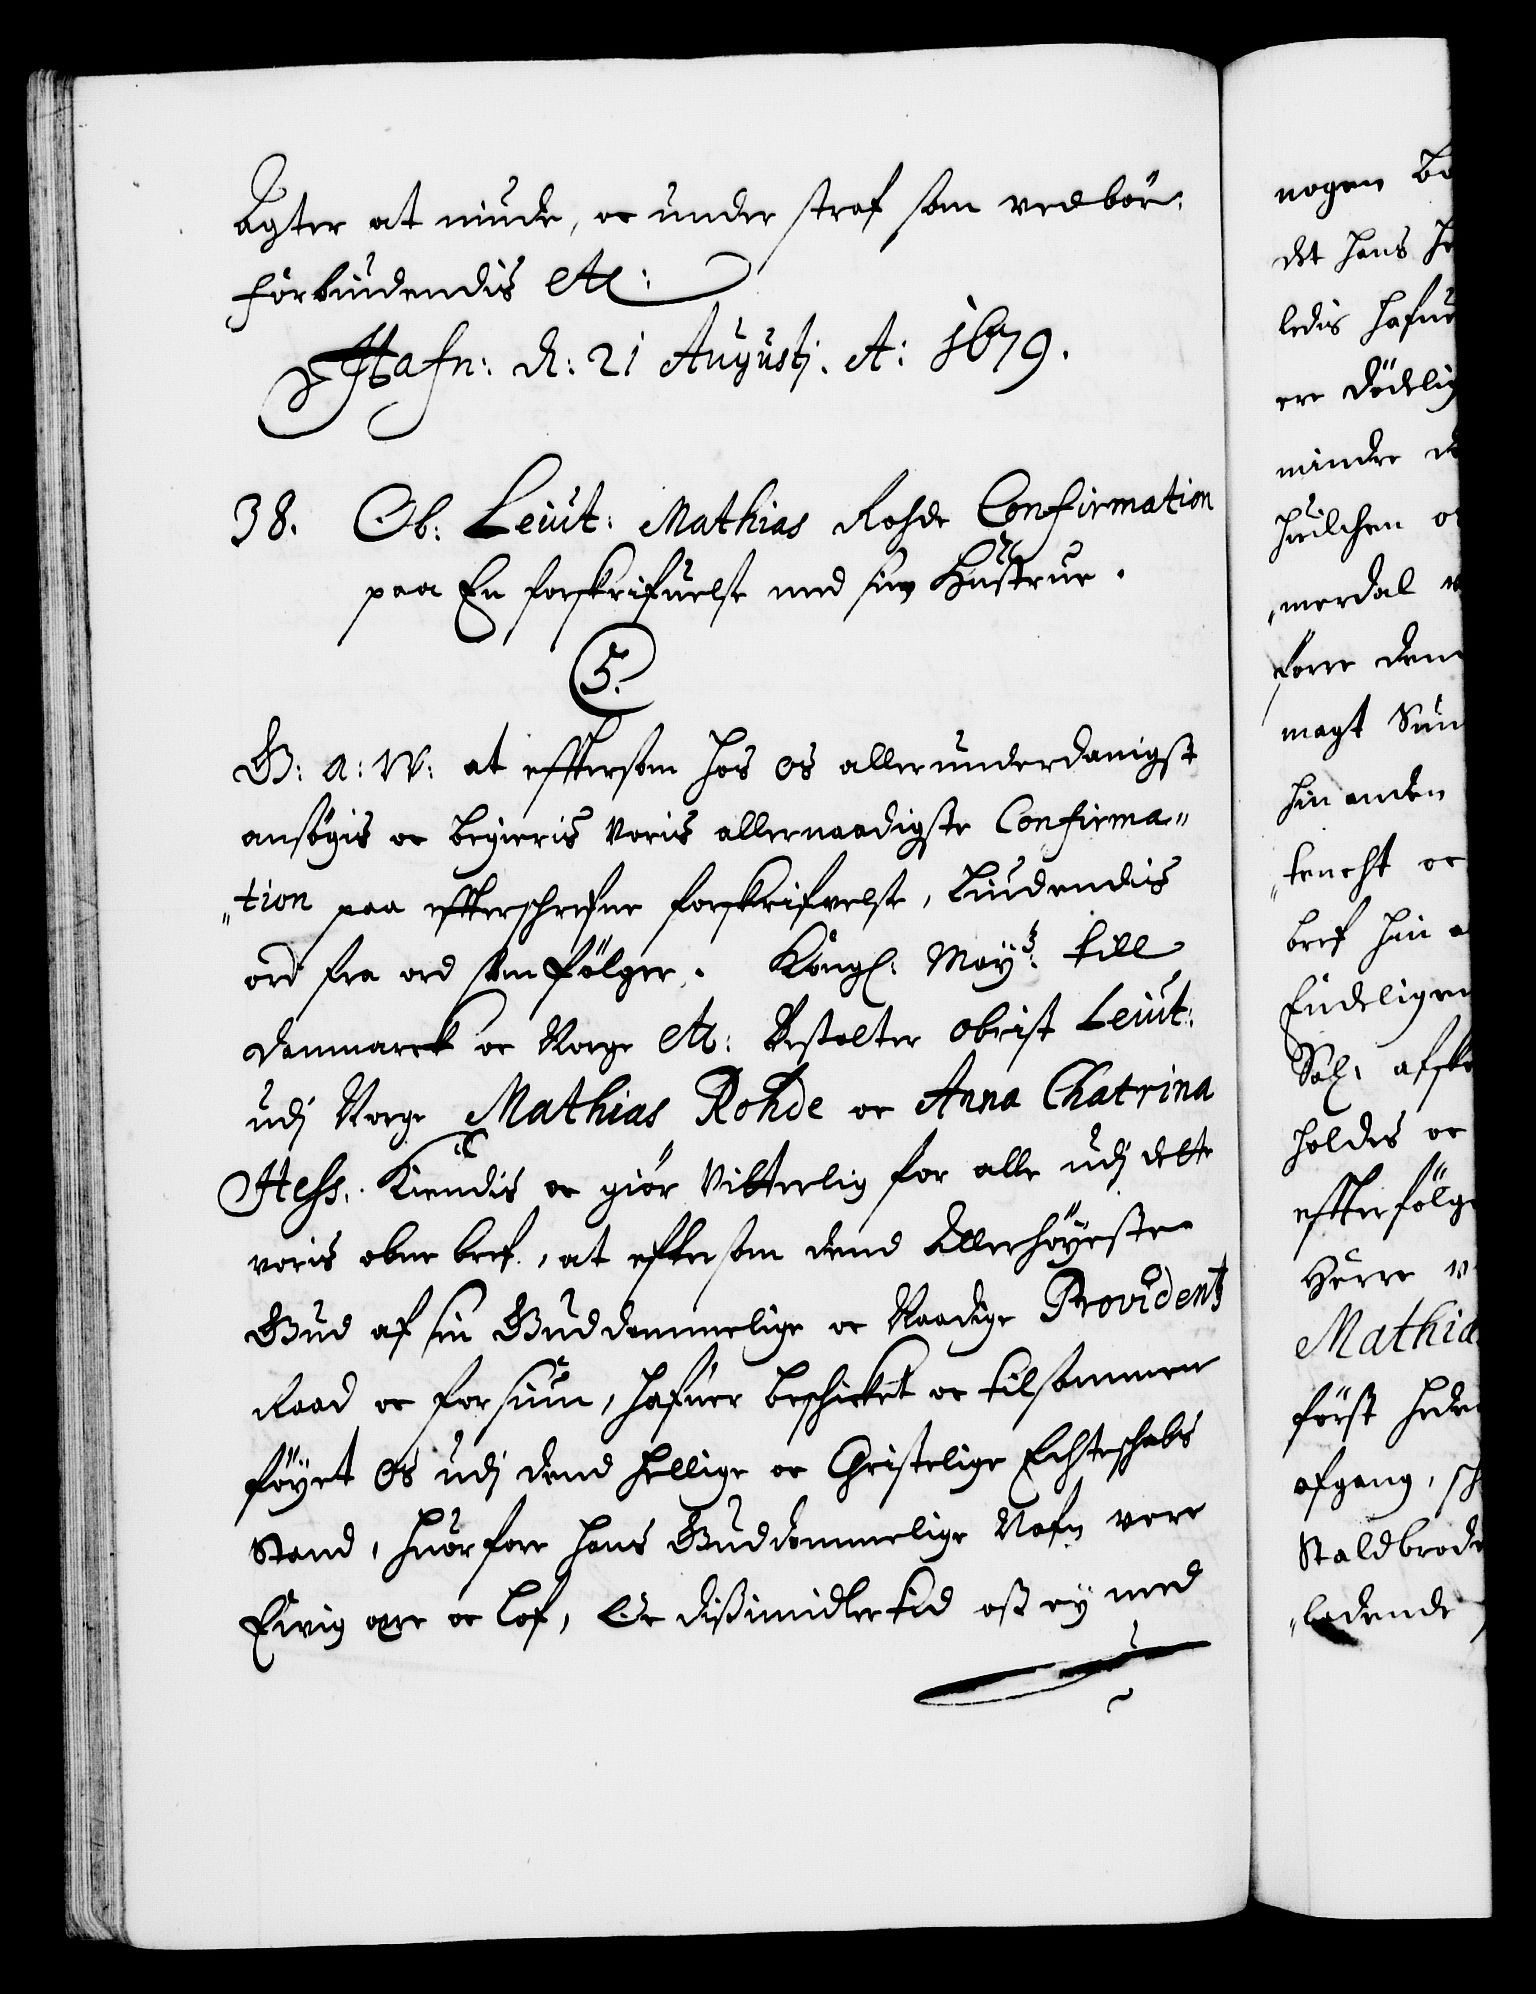 Agter at niude, oc under straf som vedbör,
forbiudendis etc:
Hafn: d: 21 Augusti. A: 1679.
38. Ob: Leiut: Mathias Rohde Confirmation
paa En forskrifuelse med sin Hustrue.
5.
G: A: W: at efftersom hos os allerunderdanigst
ansögis oc begieris Voris allernaadigste Confirma„
„tion paa effterschrefne forskrifvelse, Liudendis
ord fra ord som fölger. Kongl: Mayts: till
Danmarck oc Norge etc: Bestalter obrist Leiut:
udj Norge Mathias Rohde oc Anna Chatrina
Hess. Kiendis oc giör Vitterlig for alle udj dette
voris obne bref, at eftersom dend Allerhöyeste
Gud af sin Guddommelige oc Naadige Providentz
Raad oc forsiun, hafuer beschicket oc tilsammen
föyet Os udj dend hellige oc Christelige Echteschabs
Stand, huorfore hans Guddommelige Nafn vere
Evig ære oc lof, Oc dissimidlertid oss ey med
nogen
det hans
ledis hafue
ere dödelig
mindre
huilchen
„merdal
forre
magt
hin anden
„tencht oc
bref hin
Endeligen
Sal:
holdes oc
effterfölge
Herre
Mathia
först
afgang,
Staldbrode
„ladende